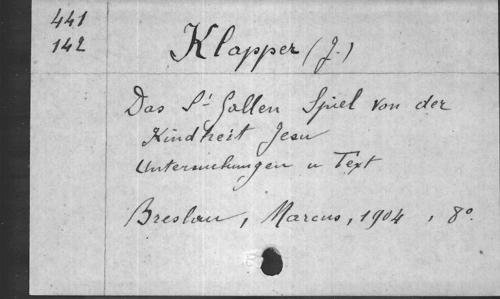 441
142
Klapper (J.)
Das St Gallen Spiel von der
Kindheit Jesu
Untersuchungen u Text
Breslau, Marcus, 1904, 8º.